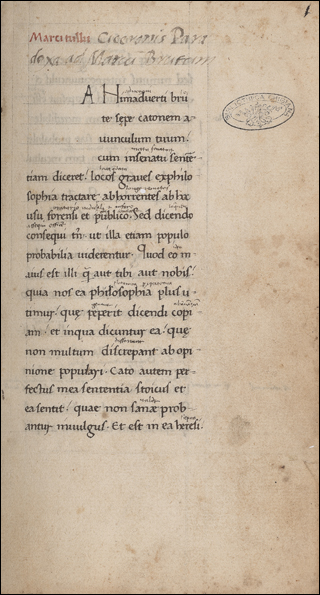 1
Marci tullii Ciceronis Para
doxa ad Marcū Brutum
ANimaduerti bru
te sepe catonem a
uunculum tuum
cum insenatu sentē
tiam diceret locos graues exphilo
sophia tractare abhorrentes ab hoc
usu forensi et publico. Sed dicendo
consequi tñ ut illa etiam populo
probabilia uiderentur. Quod eo m
aius est illi q̃ aut tibi aut nobis.
quia nos ea philosophia plus u
timur. quę peperit dicendi copi
am. et inqua dicuntur ea. quę
non multum discrepant ab opi
nione populari. Cato autem per
fectus mea sententia stoicus et
ea sentit. quae non sanæ prob
antur inuulgus. Et est in ea heresi.